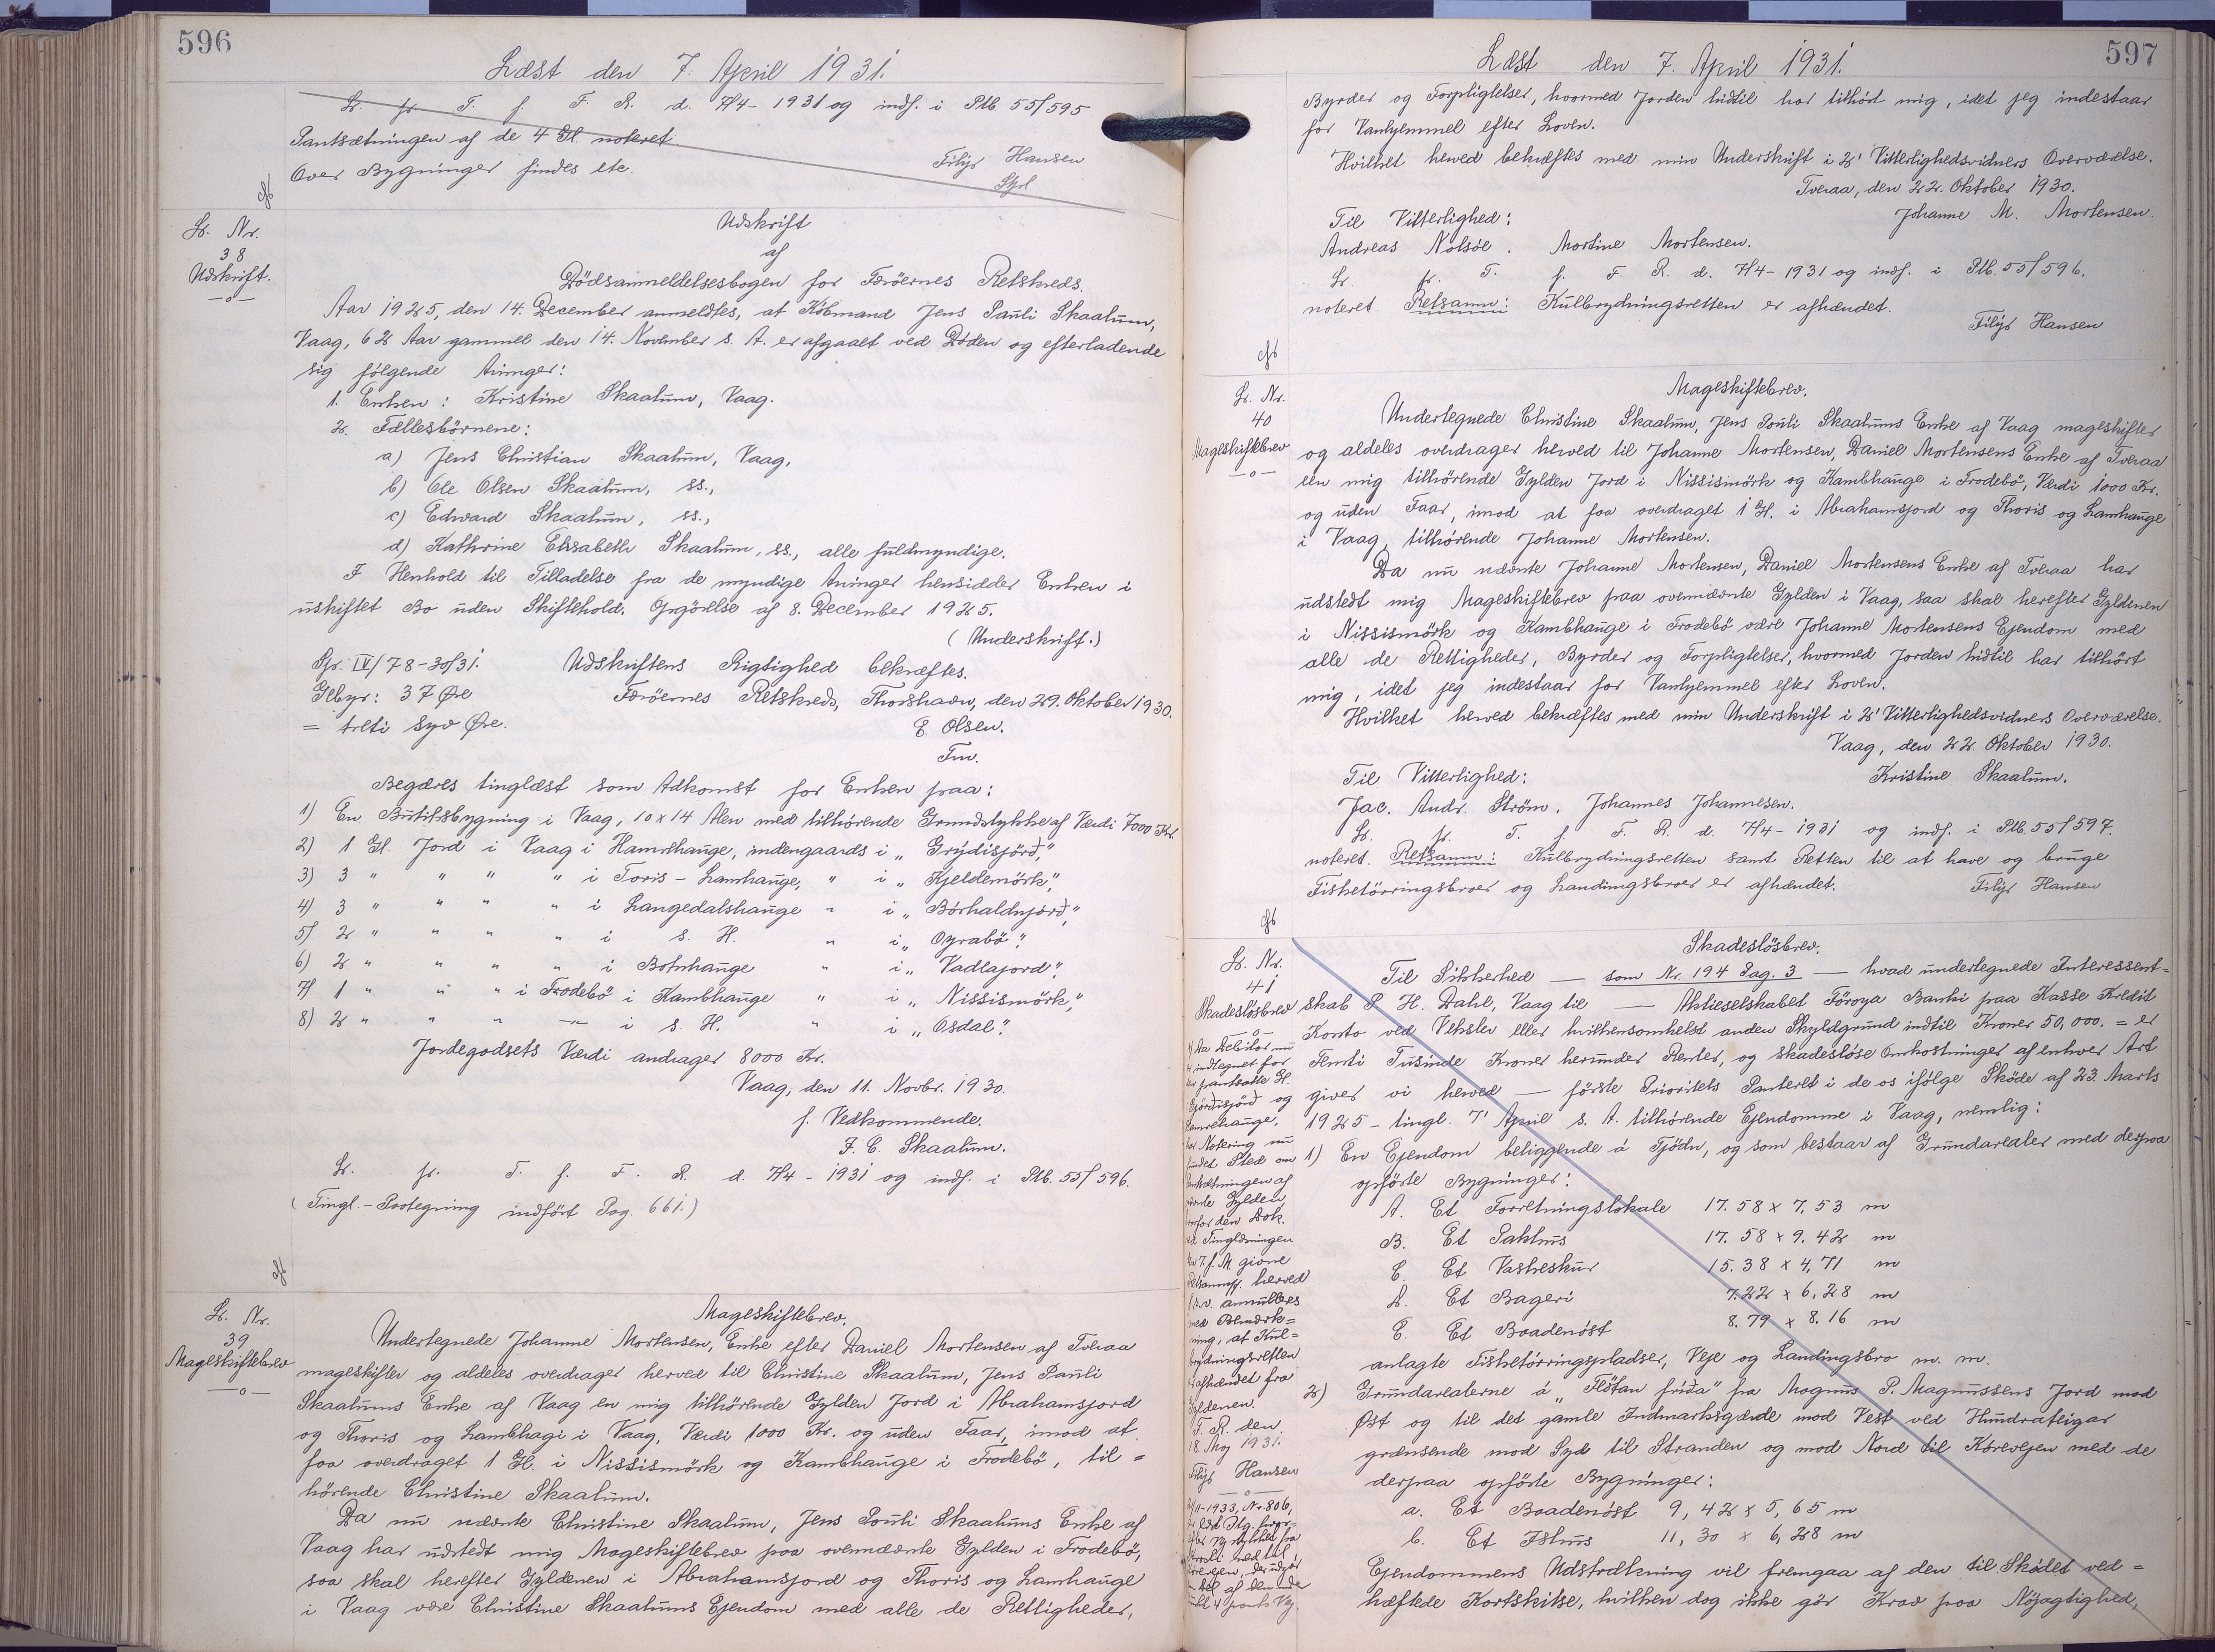 596
Læst den 7. April 1931.
Lr. fr T. f. F. R. d. 7/4- 1931 og indf. i Ptb. 55/595
Pantsætningen af de 4 Gl. noteret.
Over Bygninger findes etc.
Filip Hansen
Lb. Nr.
38
Udskrift.
—o—
Udskrift
af
Dödsanmeldelsesbogen for Færöernes Retskreds.
Aar 1925, den 14. December anmeldtes, at Köbmand Jens Pauli Skaalum,
Vaag, 62 Aar gammel den 14. November s. A. er afgaaet ved Döden og efterladende
sig følgende Arvinger:
1. Enken: Kristine Skaalum, Vaag.
2. Fællesbörnene:
a) Jens Christian Skaalum, Vaag,
b) Ole Olsen Skaalum, ss.,
c) Edward Skaalum, ss.,
d) Kathrine Elisabeth Skaalum, ss., alle fuldmyndige.
I Henhold til Tilladelse fra de myndige Arvinger hensidder Enken i
uskiftet Bo uden Skiftehold. Opgörelse af 8. December 1925.
(Underskrift.)
IV/78-30/31. Udskriftens Rigtighed bekræftes.
Gebyr: 37 Øre Færöernes Retskreds, Thorshavn, den 29. Oktober 1930.
= treti syv Øre. E. Olsen.
Fm.
Begæres tinglæst som Adkomst for Enken paa:
1) En Butiksbygning i Vaag, 10 x 14 Alen med tilhörende Grundstykke af Værdi 7000 Kr.
2) 1 Gl. Jord i Vaag i Hamrehauge, indengaards i „Grýdisjörð,"
3) 3 " " " " i Toris - Lamhauge, " i „Kjeldemörk",
4) 3 " " " " i Langedalshauge " i „Bórhaldnjörð,"
5) 2 " " " " i s. H. " i „Oyrabö".
6) 2 " " " " i Botnhauge " i „Vadlajord",
7) 1 " " " i Frodebö i Kambhauge " i „Nissismörk",
8) 2 " " " —"— i s. H. " i „Osdal".
Jordegodsets Værdi andrager 8000 Kr.
Vaag, den 11. Novbr. 1930.
f. Vedkommende.
J. C. Skaalum.
Lr. fr. T. f. F. R. d. 7/4 - 1931 og indf. i Ptb. 55/596.
(Tingl.-Paategning indført Pag. 661.)
Lb. Nr.
39
Mageskiftebrev
—o—
Mageskiftebrev.
Undertegnede Johanne Mortensen, Enke efter Daniel Mortensen af Tveraa
mageskifter og aldeles overdrager herved til Christine Skaalum, Jens Pauli
Skaalums Enke af Vaag en mig tilhörende Gylden Jord i Abrahamsjord
og Thoris og Lambhagi i Vaag, Værdi 1000 Kr. og uden Faar, imod at
faa overdraget 1 Gl. i Nissismörk og Kambhauge i Frodebö, til=
hörende Christine Skaalum.
Da nu nævnte Christine Skaalum, Jens Pouli Skaalums Enke af
Vaag har udstedt mig Mageskiftebrev paa ovennævnte Gylden i Frodebö,
saa skal herefter Gyldenen i Abrahamsjord og Thoris og Lamhauge
i Vaag være Christine Skaalums Ejendom med alle de Rettigheder,
597
Læst den 7. April 1931.
Byrder og Forpligtelser, hvormed Jorden hidtil har tilhørt mig, idet jeg indestaar
for Vanhjemmel efter Loven.
Hvilket herved bekræftes med min Underskrift i 2' Vitterlighedsvidners Overværelse.
Tveraa, den 22. Oktober 1930.
Til Vitterlighed: Johanne M. Mortensen.
Andreas Nolsöe. Mortine Mortensen.
Lr. fr. T. f. F. R. d. 7/4- 1931 og indf. i Ptb. 55/596.
noteret Retsanm: Kulbrydningsretten er afhændet.
Filip Hansen
Lb. Nr.
40
Mageskiftebrev
—o—
Mageskiftebrev.
Undertegnede Christine Skaalum, Jens Pouli Skaalums Enke af Vaag mageskifter
og aldeles overdrager herved til Johanne Mortensen, Daniel Mortensens Enke af Tveraa
een mig tilhörende Gylden Jord i Nissismörk og Kambhauge i Frodebö, Værdi 1000 Kr.
og uden Faar, imod at faa overdraget 1 Gl. i Abrahamsjord og Thoris og Lamhauge
i Vaag, tilhörende Johanne Mortensen.
Da nu nævnte Johanne Mortensen, Daniel Mortensens Enke af Tveraa har
udstedt mig Mageskiftebrev paa ovennævnte Gylden i Vaag, saa skal herefter Gyldenen
i Nissismörk og Kambhauge i Frodebö være Johanne Mortensens Ejendom med
alle de Rettigheder, Byrder og Forpligtelser, hvormed Jorden hidtil har tilhört
mig, idet jeg indestaar for Vanhjemmel efter Loven.
Hvilket herved bekræftes med min Underskrift i 2' Vitterlighedsvidners Overværelse.
Vaag, den 22. Oktober 1930.
Til Vitterlighed: Kristine Skaalum.
Jac. Andr. Ström. Johannes Johannesen.
Lr. fr. T. f. F. R. d. 7/4- 1931 og indf. i Ptb. 55/597.
noteret. Retsanm: Kulbrydningsretten samt Retten til at have og bruge
Fisketörringsbroer og Landingsbroer er afhændet. Filip Hansen
Lb. Nr.
41
Skadeslösbrev
—o—
Skadeslösbrev.
Til Sikkerhed — som Nr. 194 Pag. 3 — hvad undertegnede Interessent=
skab P. H. Dahl, Vaag til — Aktieselskabet Föroya Banki paa Kasse Kredit
Konto ved Veksler eller hvilkensomhelst anden Skyldgrund indtil Kroner 50,000. = er
Femti Tusinde Kroner herunder Renter, og skadeslöse Omkostninger af enhver Art
giver vi herved — förste Prioritets Panteret i de os ifölge Sköde af 23. Marts
1925 - tingl. 7' April s. A. tilhörende Ejendomme i Vaag, nemlig:
1) En Ejendom beliggende á Tjödn, og som bestaar af Grundarealer med derpaa
opförte Bygninger:
A. Et Forretningslokale 17.58 x 7,53 m
B. Et Pakhus 17.58 x 9.42 m
C. Et Vaskeskur 15.38 x 4,71 m
D. Et Bageri 7.22 x 6,28 m
E. Et Baadenöst 8.79 x 8.16 m
anlagte Fisketörringspladser, Veje og Landingsbro m. m.
2) Grundarealerne á „Flötan fríða" fra Magnus P. Magnussens Jord mod
Øst og til det gamle Indmarksgærde mod Vest ved Hundrateigar
grænsende mod Syd til Stranden og mod Nord til Kørevejen med de
derpaa opförte Bygninger:
a. Et Baadenöst 9,42 x 5,65 m
b. Et Ishus 11,30 x 6,28 m
Ejendommens Udstrækning vil fremgaa af den til Sködet ved=
hæftede Kortskitse, hvilken dog ikke gör Krav paa Nöjagtighed,
Da Debitor nu
indtegnet for
pantsatte Gl.
og
Hamrehauge,
Notering nu
fundet Sted om
Pantsætningen af
nævnte Gylden
for den Dok.
ved Tinglæsningen
d. 7. f. M. givne
Retsanm. herved
annulleres
med Bemærk=
ning, at Kul=
brydningsretten
afhændet fra
Gyldenen.
F. R. den
18. Maj 1931.
Filip Hansen
—o—
1933, Nr. 806,